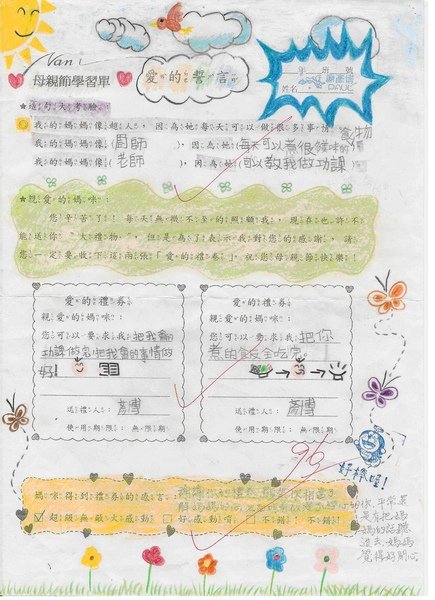 Vani
母親節學習單
愛的誓言
年 班 號
姓名：
PAUL
★造句大考驗：
我的媽媽像超人，因為她每天可以做很多事情
我的媽媽像(廚師)，因為她(每天可以煮很
食物
我的媽媽像(老師)，因為她(可以教我做功課)
★親愛的媽咪：
您辛苦了！！每天無微不至的照顧我，現在也許不
能送你「大禮物」，但是為了表示我對您的感謝，請
您一定要收下這兩張「愛的禮券」，祝您母親節快樂！
愛的禮券
親愛的媽咪：
您可以要求我把我會的
功課做完把我會的事情做
好！
送禮人：
使用期限：無限期
愛的禮券
親愛的媽咪：
您可以要求我把你
煮的飯全吃完
送禮人：
使用期限：無限期
96
好棒哦！
媽咪得到禮券的感言：
超級無敵大感動 好感唷！ 不錯！不錯！
平常
是有把媽
媽的話聽
進去，媽媽
覺得好開心